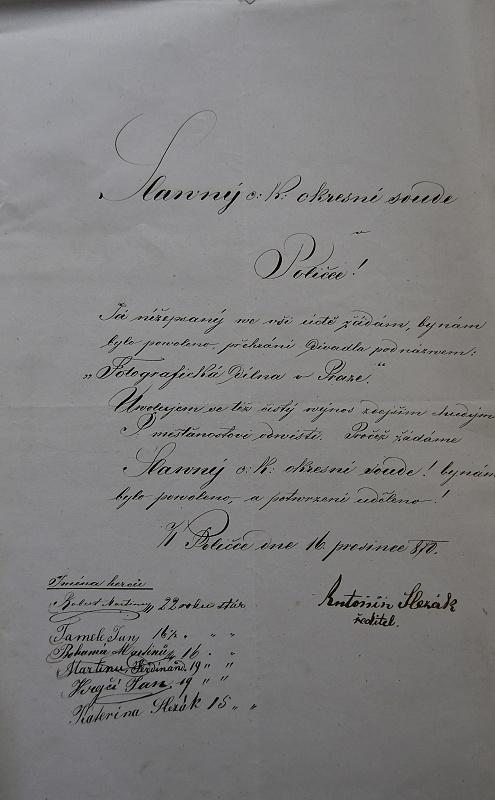 Slawný c: k: okresní soude
v
Poličce!
Já nížepsaný we vší úctě žádám, by nám
bylo powoleno, přehrání Divadla pod názwem:
„Fotografická Dílna v Praze."
Uvolujem se též čistý wýnos zdejším chudým
P. měšťanostovi odwésti. Pročež žádáme
Slawný c: k: okresní soude! by nám
bylo powoleno, a potwrzení uděleno!
W Poličce dne 16. prosince
Antonín Slezák
ředitel.
Jména herců
Robert Martinů 22 roků stár
Tamele Jan 16½ „ „
Bohumil Martinů 16 „ „
Martinu, Ferdinand 19 „ „
Krejčí Jan 19 „ „
Kateřina Slezák 15 „ „